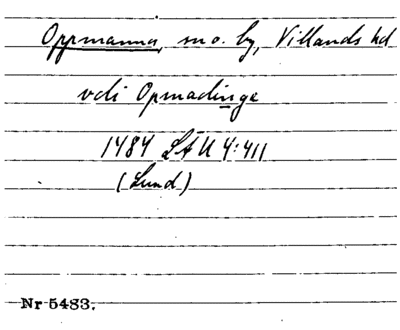 Oppmanna, sno. by, Villands hd
vdi Opmadinge
1484 LÄU 4:411
(Lund)
Nr 5483.